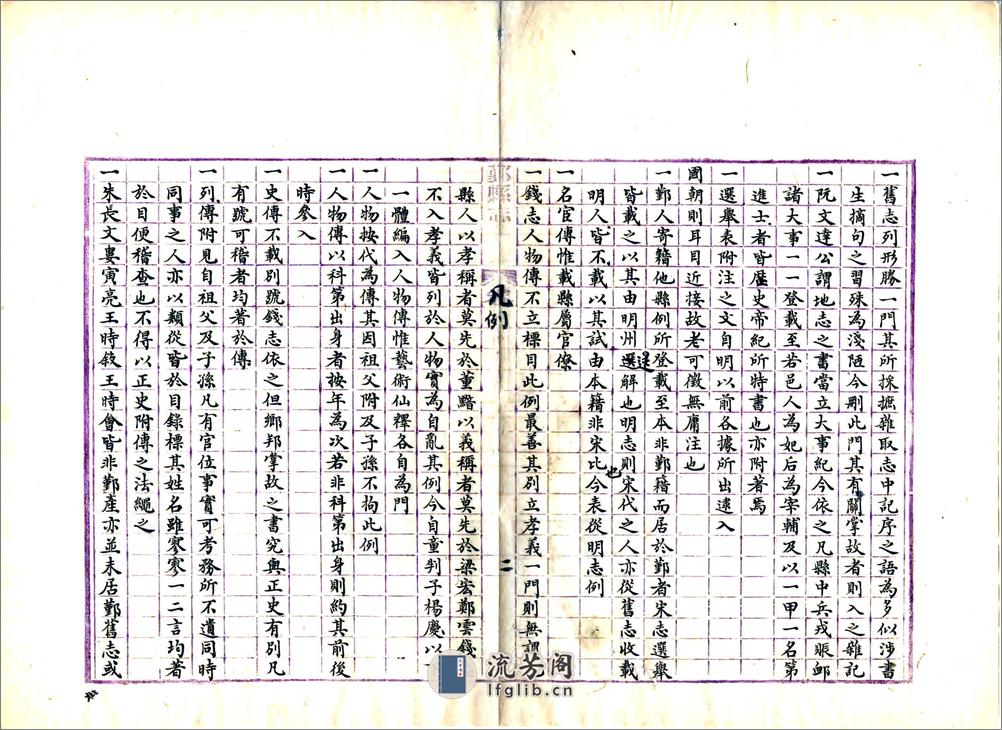 一舊志列形勝一門其所採摭雜取志中記序之語為多似涉書
生摘句之習殊為淺陋今刪此門其有關掌故者則入之雜記
一阮文達公謂地志之書當立大事紀今依之凡縣中兵戎賑卹
諸大事一一登載至若邑人為妃后為宰輔及以一甲一名第
進士者皆歷史帝紀所特書也亦附著焉
一選舉表附注之文自明以前各據所出逮入
國朝則耳目近接故老可徵無庸注也
一鄞人寄籍他縣例所登載至本非鄞籍而居於鄞者宋志選舉
皆載之以其由明州選解也明志則宋代之人亦從舊志收載
明人皆不載以其試由本籍非宋比也今表從明志例
一名宦傳惟載縣屬官僚
一錢志人物傳不立標目此例最善其別立孝義一門則無謂
鄞縣志
凡例
二
縣人以孝稱者莫先於董黯以義稱者莫先於梁宏鄭雲錢
不入孝義皆列於人物實為自亂其例今自童判子楊慶以
一體編入人物傳惟藝術仙釋各自為門
一人物按代為傳其因祖父附及子孫不拘此例
一人物傳以科第出身者按年為次若非科第出身則約其前後
時參入
一史傳不載別號錢志依之但鄉邦掌故之書究與正史有別凡
有號可稽者均著於傳
一列傳附見自祖父及子孫凡有官位事實可考務所不遺同時
同事之人亦以類從皆於目錄標其姓名雖寥寥一二言均著
於目便稽查也不得以正史附傳之法繩之
一朱長文婁寅亮王時敍王時會皆非鄞產亦並未居鄞舊志或
流芳阁
lfglib.cn